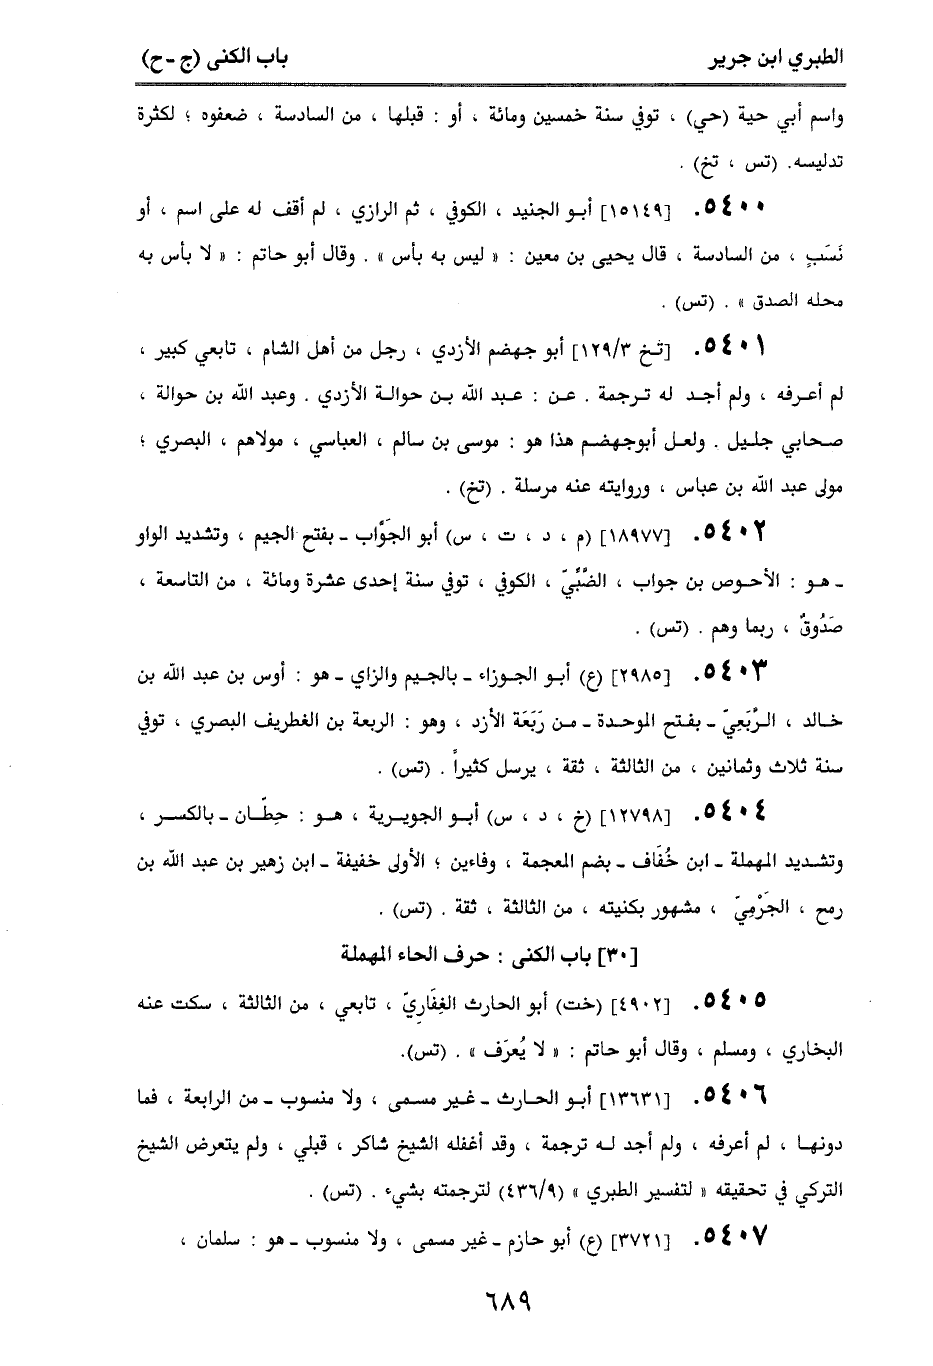 الطبري ابن جرير
باب الكنى (ج - ح)
واسم أبي حية (حي) ، توفي سنة خمسين ومائة ، أو : قبلها ، من السادسة ، ضعفوه ؛ لكثرة
تدليسه. (تس ، تخ) .
٥٤٠٠. [١٥١٤٩] أبـو الجنيد ، الكوفي ، ثم الرازي ، لم أقف له على اسم ، أو
نَسَبٍ ، من السادسة ، قال يحيى بن معين : « ليس به بأس » . وقال أبو حاتم : « لا بأس به
محله الصدق » . (تس) .
٥٤٠١. [تـخ ١٢٩/٣] أبو جهضم الأزدي ، رجل من أهل الشام ، تابعي كبير ،
لم أعـرفه ، ولم أجـد له تـرجمة . عـن : عـبد الله بـن حوالـة الأزدي . وعبد الله بن حوالة ،
صـحابي جلـيل . ولعـل أبوجهضم هذا هو : موسى بن سالم ، العباسي ، مولاهم ، البصري ؛
مولى عبد الله بن عباس ، وروايته عنه مرسلة . (تخ) .
٥٤٠٢. [١٨٩٧٧] (م ، د ، ت ، س) أبو الجَوَّاب ـ بفتح الجيم ، وتشديد الواو
ـ هـو : الأحـوص بن جواب ، الضَّبِّيّ ، الكوفي ، توفي سنة إحدى عشرة ومائة ، من التاسعة ،
صَدُوقٌ ، ربما وهم . (تس) .
٥٤٠٣. [٢٩٨٥] (ع) أبـو الجـوزاء ـ بالجـيم والزاي ـ هو : أوس بن عبد الله بن
خـالد ، الـرَّبَعِيّ ـ بفـتح الموحـدة ـ مـن رَبَعَة الأزد ، وهو : الربعة بن الغطريف البصري ، توفي
سنة ثلاث وثمانين ، من الثالثة ، ثقة ، يرسل كثيراً . (تس) .
٥٤٠٤. [١٢٧٩٨] (خ ، د ، س) أبـو الجويـرية ، هـو : حِطّـان ـ بالكسـر ،
وتشـديد المهملة ـ ابن خُفَاف ـ بضم المعجمة ، وفاءين ؛ الأولى خفيفة ـ ابن زهير بن عبد الله بن
رمح ، الجَرْمِيّ ، مشهور بكنيته ، من الثالثة ، ثقة . (تس) .
[٣٠] باب الكنى : حرف الحاء المهملة
٥٤٠٥. [٤٩٠٢] (خت) أبو الحارث الغِفَارِيّ ، تابعي ، من الثالثة ، سكت عنه
البخاري ، ومسلم ، وقال أبو حاتم : « لا يُعرَف » . (تس).
٥٤٠٦. [١٣٦٣١] أبـو الحـارث ـ غـير مسـمى ، ولا منسوب ـ من الرابعة ، فما
دونهـا ، لم أعرفه ، ولم أجد لـه ترجمة ، وقد أغفله الشيخ شاكر ، قبلي ، ولم يتعرض الشيخ
التركي في تحقيقه « لتفسير الطبري » (٤٣٦/٩) لترجمته بشيء . (تس) .
٥٤٠٧. [٣٧٢١] (ع) أبو حازم ـ غير مسمى ، ولا منسوب ـ هو : سلمان ،
٦٨٩